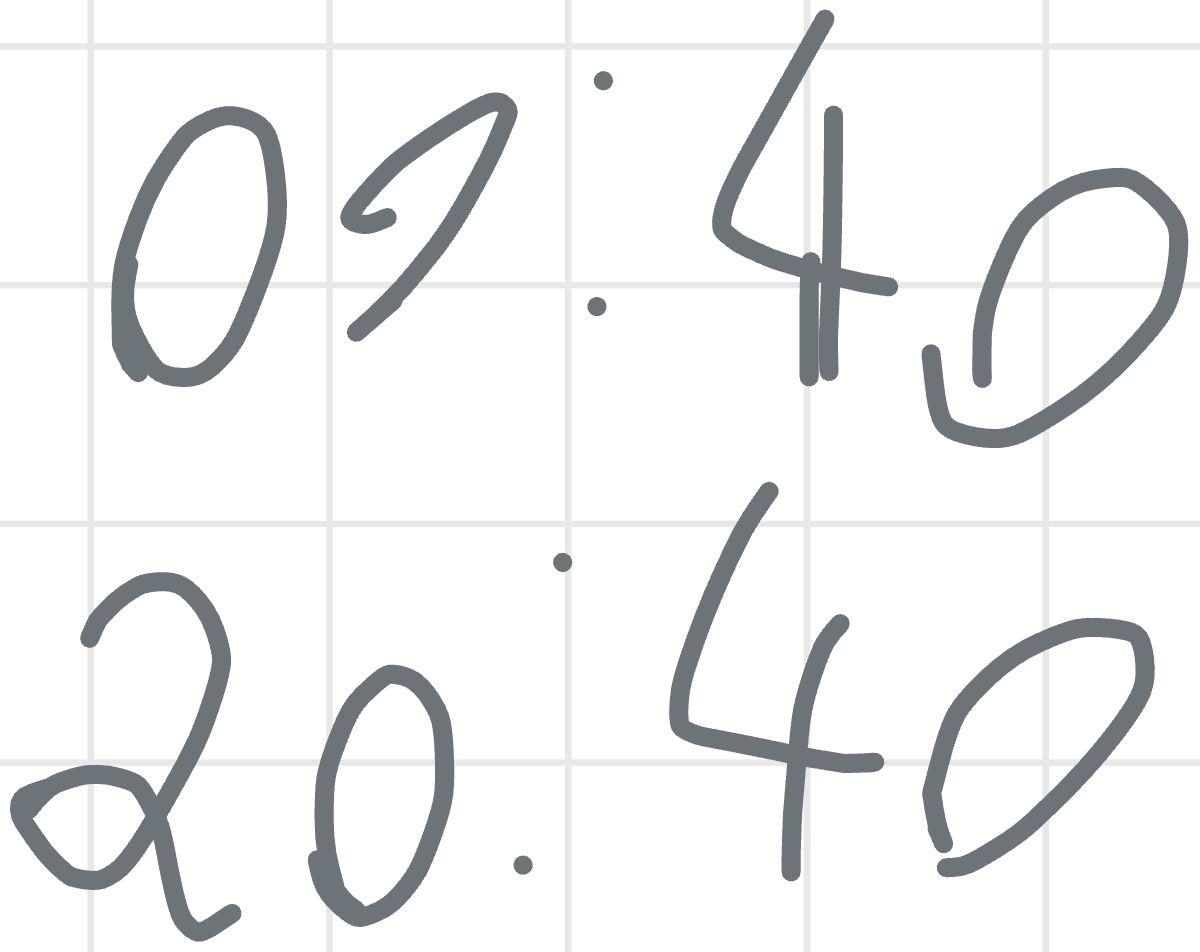 09:40
20:40